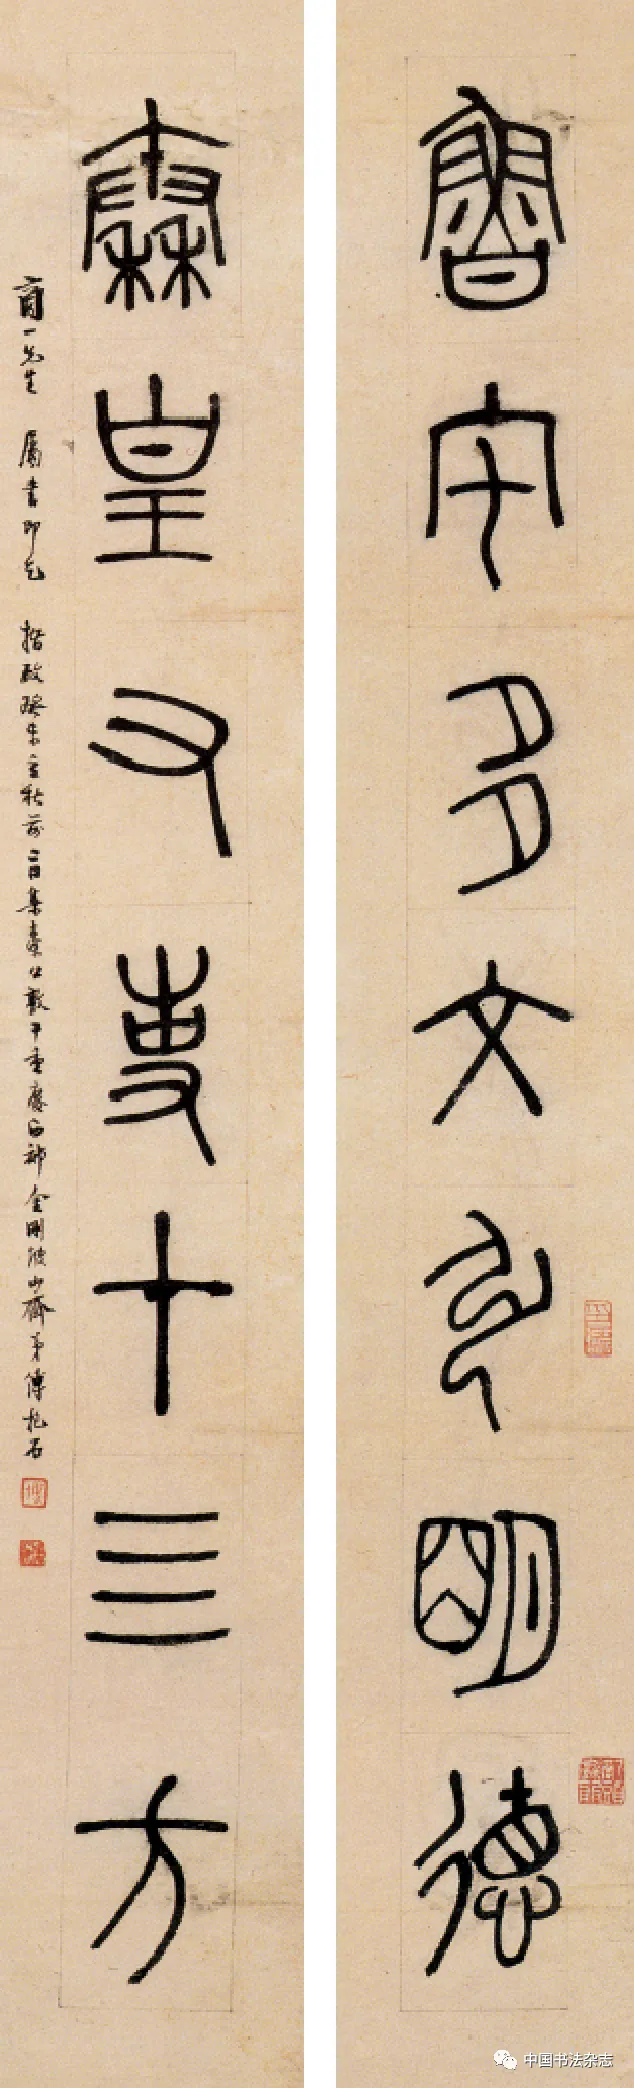 魯宅多文明德
秦皇又事十亖方
先生 屬書即乞 指政癸未立秋前二日集秦公敦于重慶西郊金剛坡山齋弟傅抱石
中国书法杂志